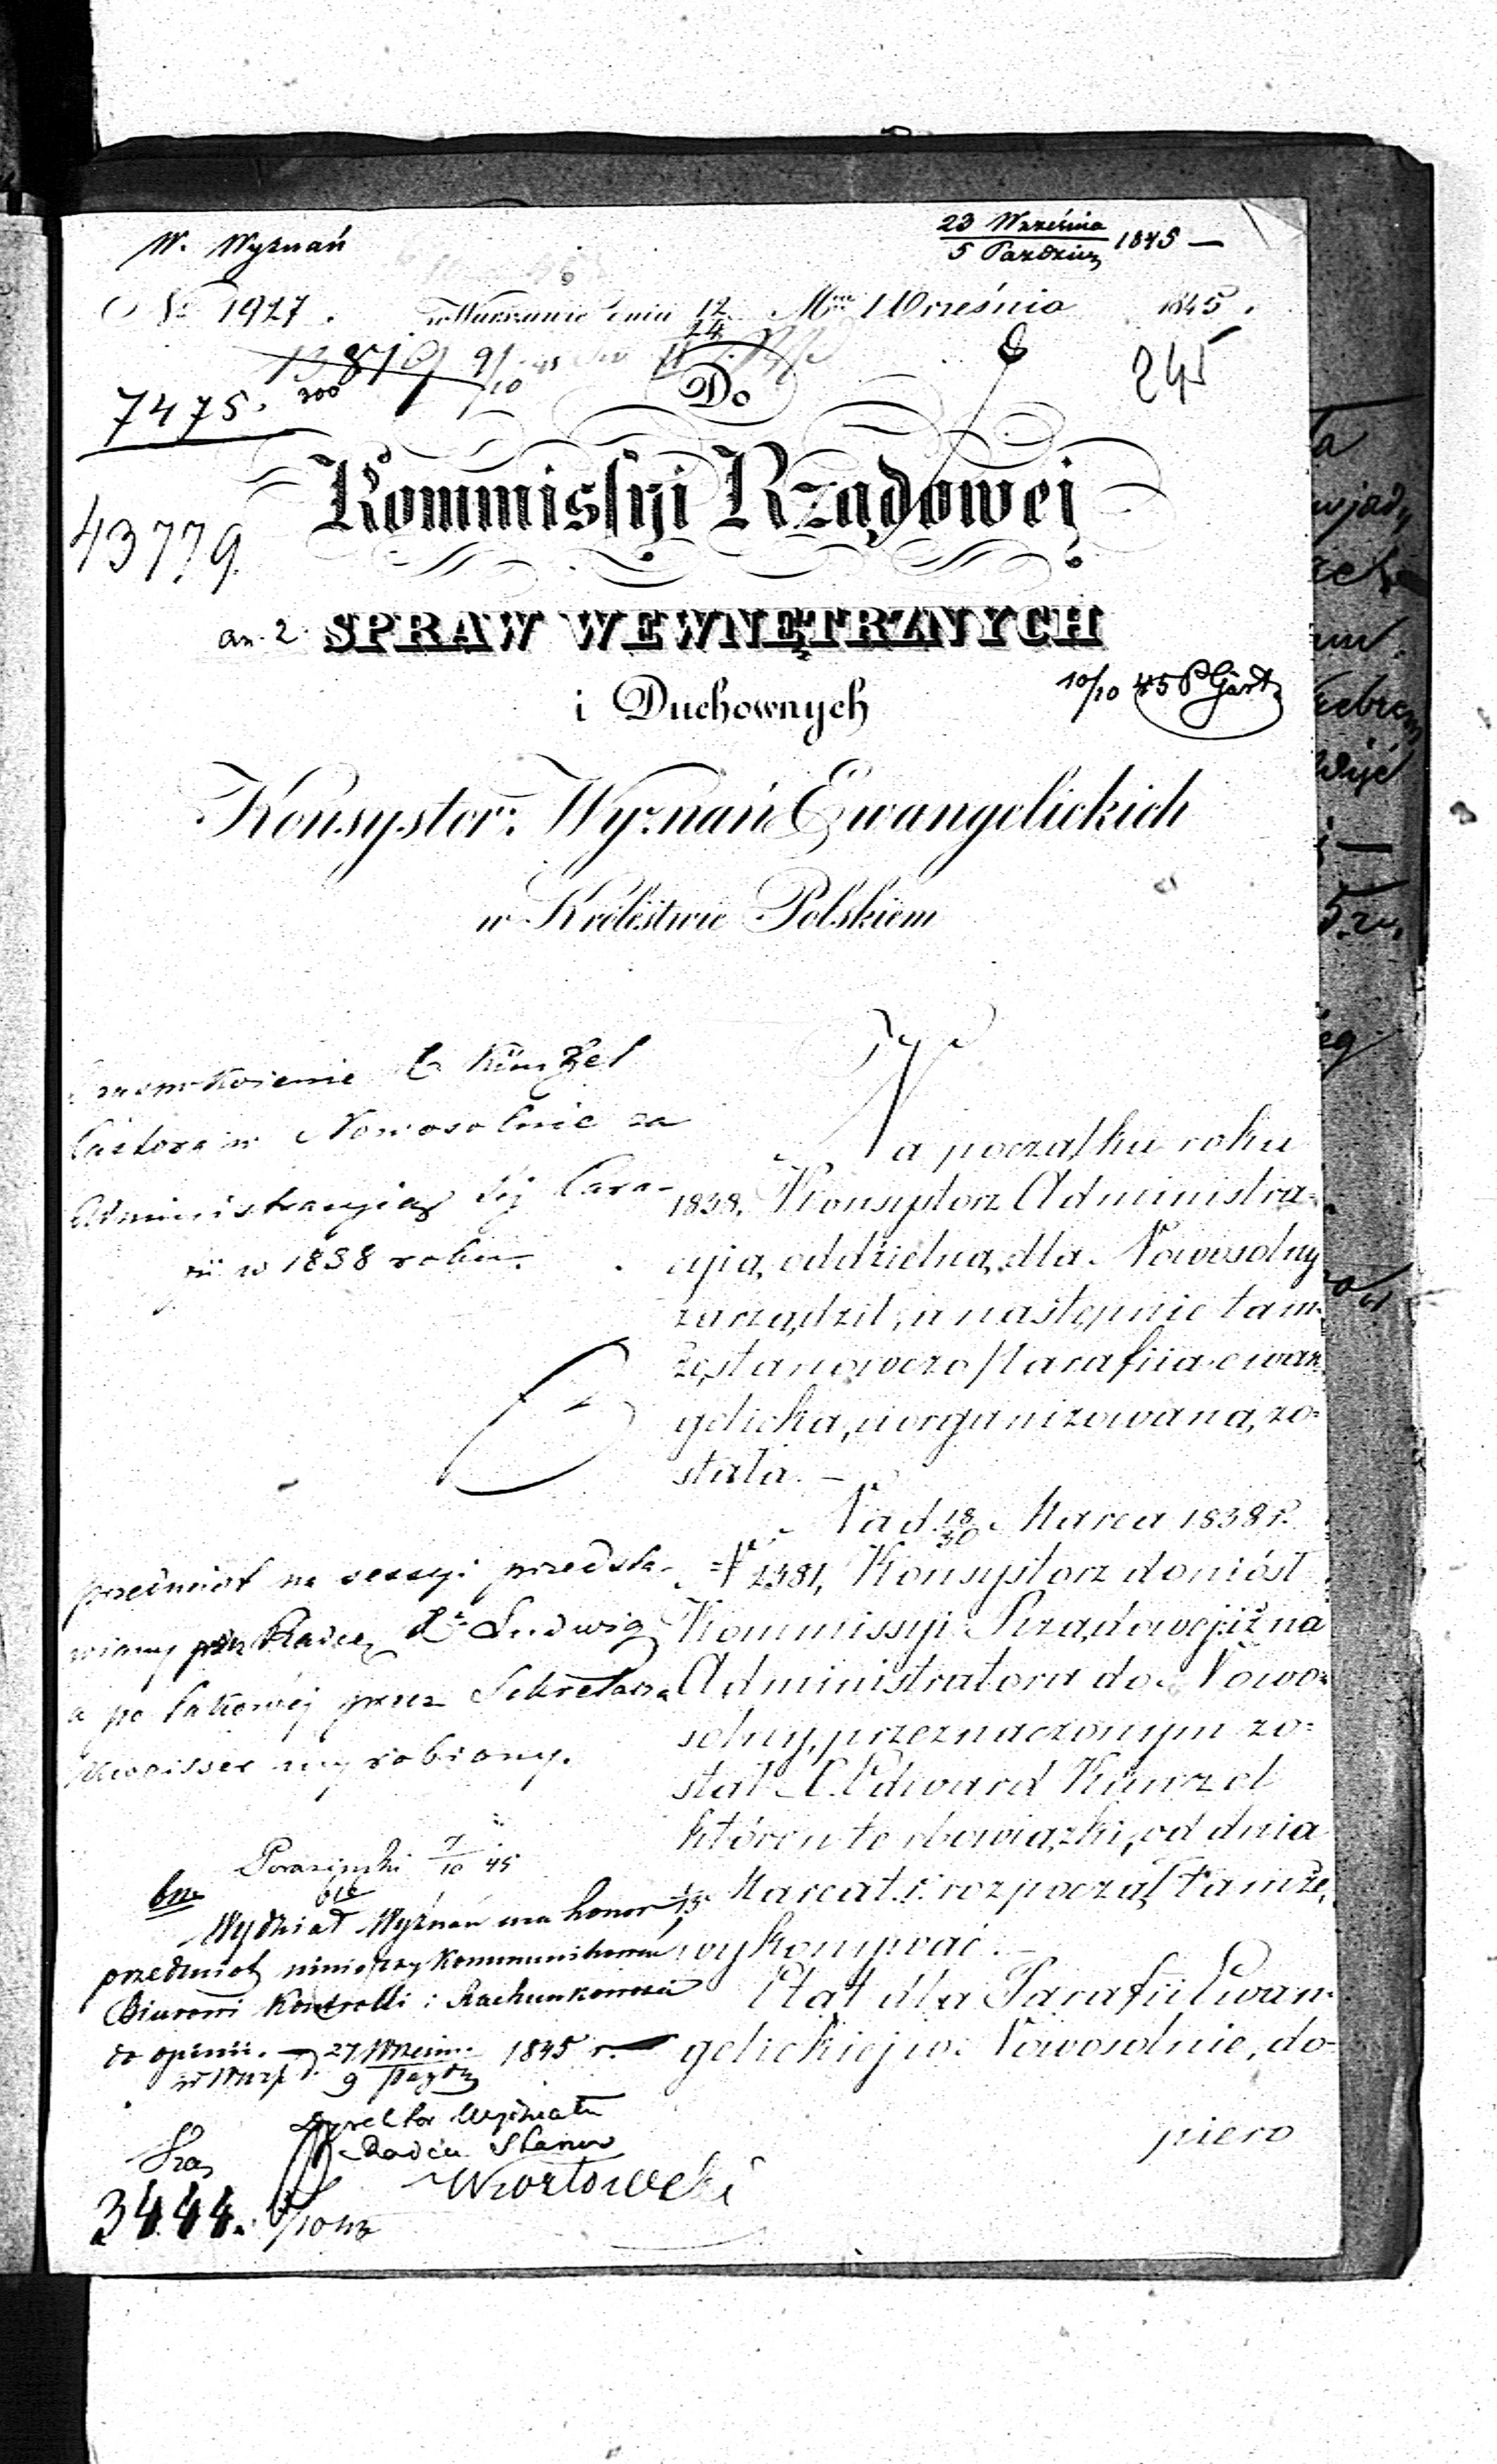 W. Wyznań
23 Września
5 Paździer 1845 —
No 1927. w Warszawie dnia 12/24 Mca Września 1845.
9/10 45
7475.
300
Do
245
Kommissyi Rządowej
43779.
an. 2.
SPRAW WEWNĘTRZNYCH
i Duchownych
10/10 45
Konsystorz Wyznań Ewangelickich
w Królestwie Polskiem
Künzel
Pastora w Nowosolnie za
Administracyią tej Para-
fii w 1838 roku.
Na początku roku
1838, Konsystorz Administra-
cyią oddzielną dla Nowosolny
zarządził, a następnie tam-
że stanowczo Parafiia ewan-
gelicka, uorganizowaną zo-
stała. —
Pod d. 18/30 Marca 1838 r.
No 2381, Konsystorz doniósł
Kommissyi Rządowej iż na
Administratora do Nowo-
solny, przeznaczonym zo-
stał X. Edward Künzel
któren te obowiązki, od dnia
1/13 Marca t. r. rozpoczął tamże,
wykonywać. —
Etat dla Parafii Ewan-
gelickiej w Nowosolnie, do-
piero
przedmiot na sessyi przedsta-
wiony przez Radcę Dr Ludwig
a po takowej przez Sekretarza
wyrobiony.
7/10 45
Wydział Wyznań ma honor
przedmiot niniejszy kommunikować
Biurowi Kontrolli i Rachunkowości
do opinii. — d. 27 Wrześn. / 9 Paźdz 1845 r.
Dyrektor Wydziału
Radca Stanu
3444.